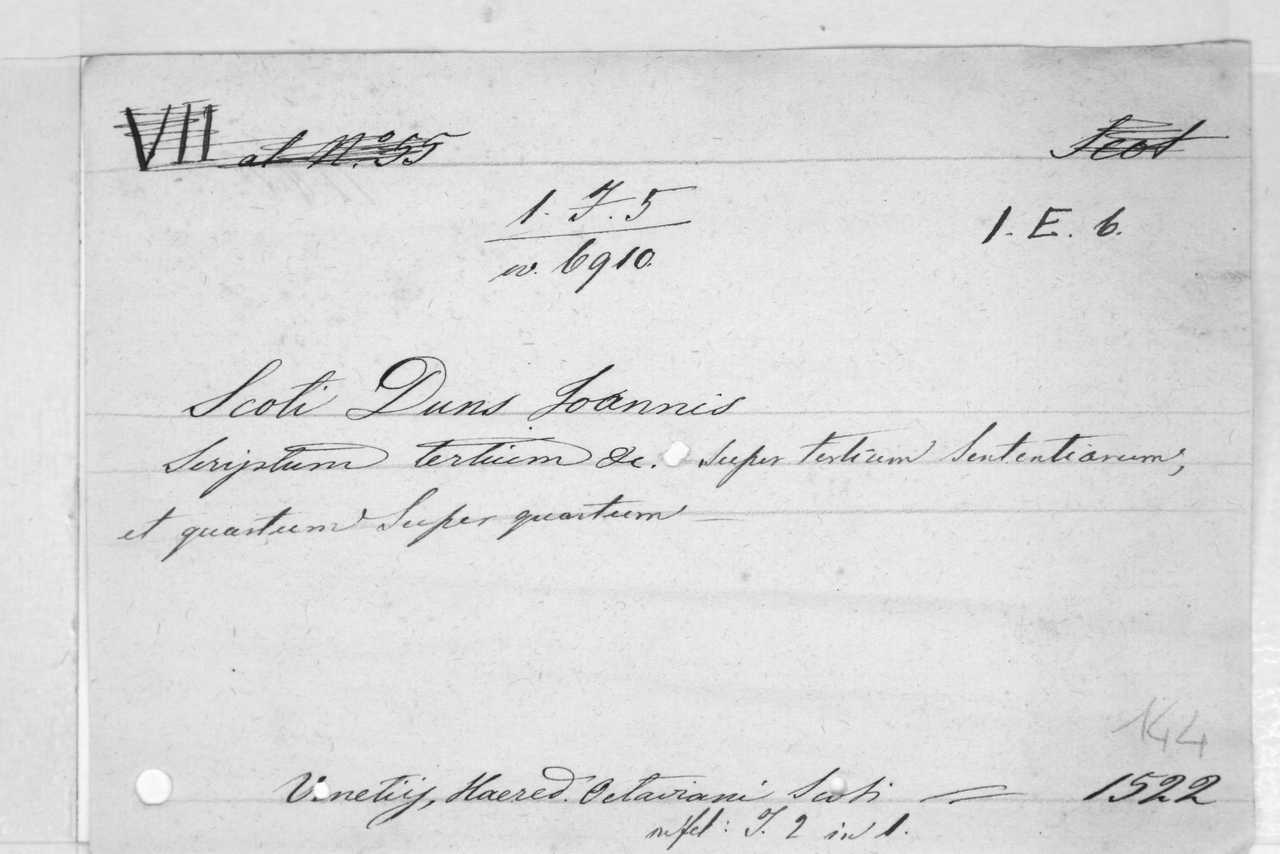 VII al Nº 55 Scot
1. F. 5 1. E. 6.
6910.
Scoti Duns Joannis
Scriptum tertium &c. Super tertium Sententiarum,
et quartum Super quartum —
144
Venetijs, Haered. Octaviani Scoti — 1522
T. 2 in 1.